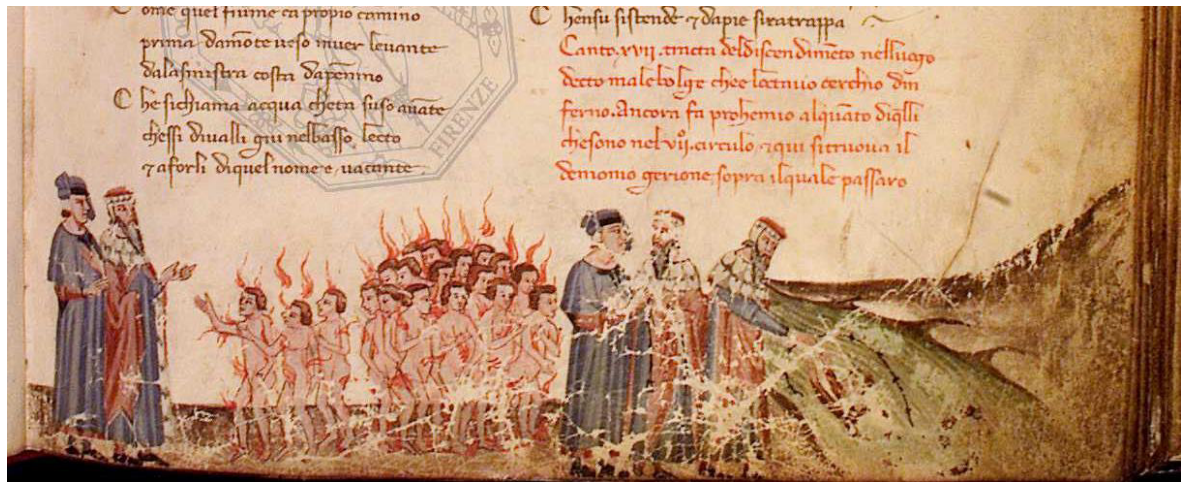 Ome quel fiume ca propio camino
prima damōte ueso inuer leuante
dalasinistra costa dapēnino
C he sichiama acqua cheta suso auāte
chessi diualli giu nelbasso lecto
⁊ aforli diquel nome e uacante.
C hensu sistende ⁊ dapie siratrappa
Canto. xvii. tracta deldiscendimēto nelluogo
decto malebolge chee
ferno. Ancora fa prohemio alquāto
chesono nel vij. circulo, ⁊ qui sitruoua il
demonio gerione sopra ilquale passaro
FIRENZE